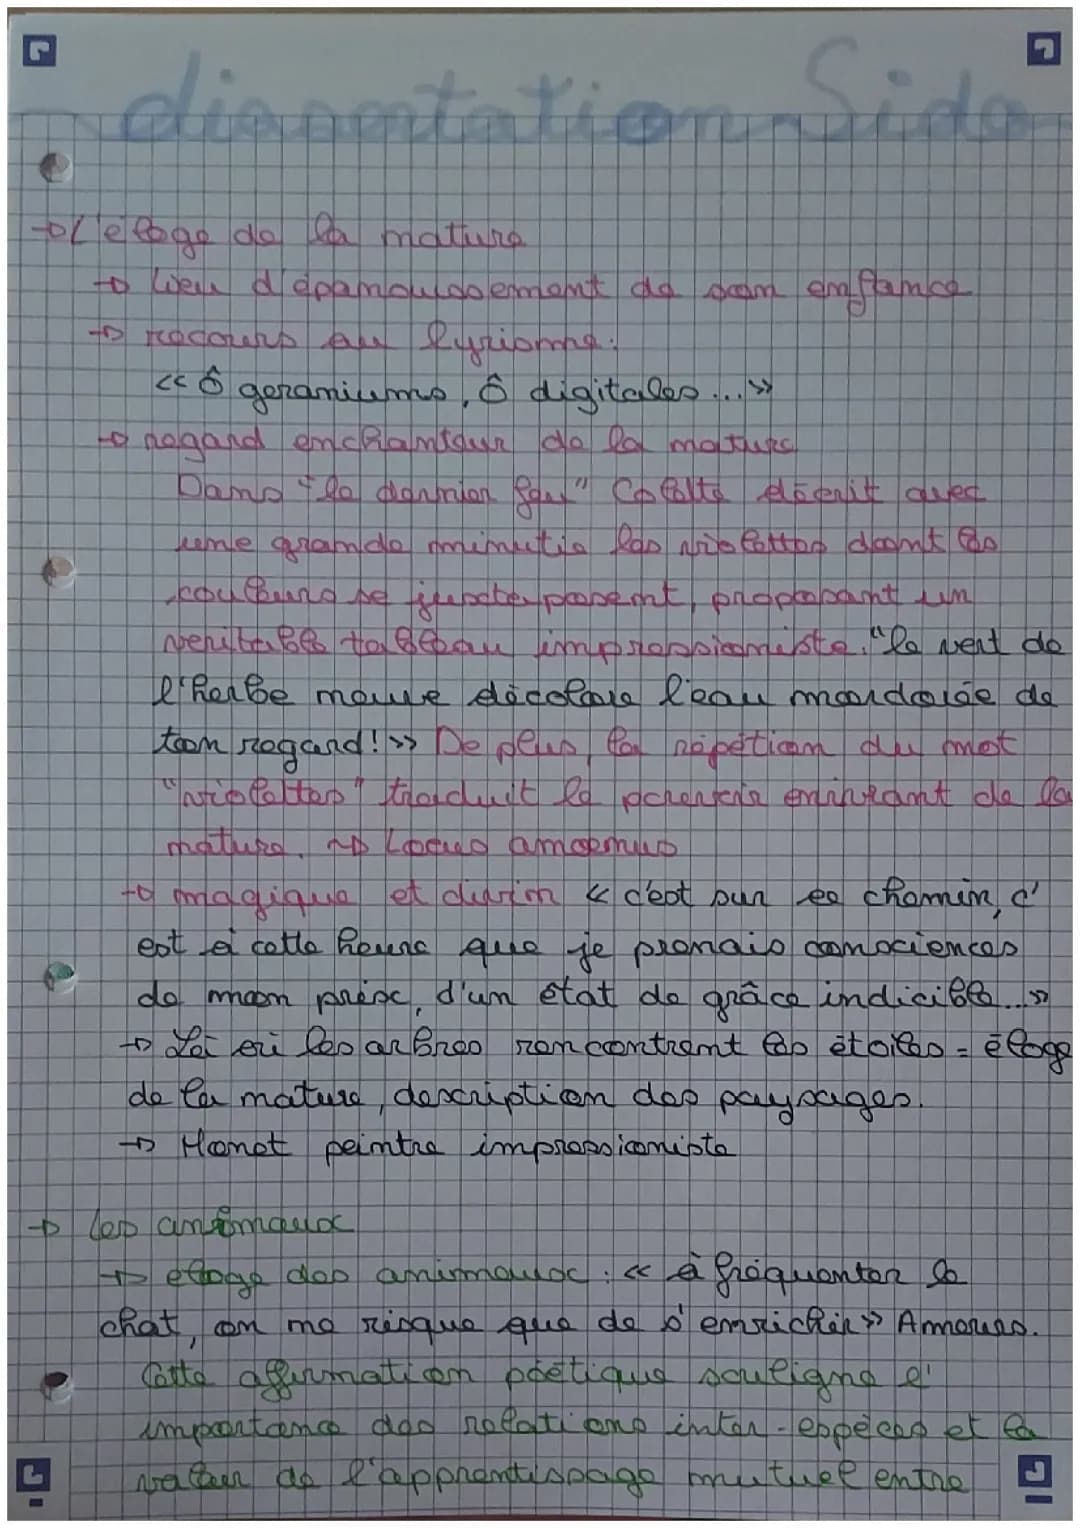 dissertation Sido
→ L'éloge de la nature
→ lieu d'épanouissement de son enfance
→ recours au lyrisme:
<< Ô geraniums, Ô digitales... >>
→ regard enchanteur de la nature
Dans "le dernier feu" Colette décrit avec
une grande minutie les violettes dont les
couleurs se juxtaposent, proposant un
veritable tableau impressioniste. "le vert de
l'herbe neuve décolore l'eau mordorée de
ton regard! >> De plus, la répétition du mot
"violettes" traduit le pouvoir enivrant de la
nature. → Locus amoenus
→ magique et divin << c'est sur ce chemin, c'
est à cette heure que je prenais consciences
de mon prix, d'un état de grâce indicible... >>
→ Là où les arbres rencontrent les étoiles = éloge
de la nature, description des paysages.
→ Monet peintre impressioniste
→ les animaux
→ eloge des animaux : << à fréquenter le
chat, on ne risque que de s'enrichir >> Amours.
Cette affirmation poétique souligne l'
importance des relations inter-espèces et la
valeur de l'apprentissage mutuel entre